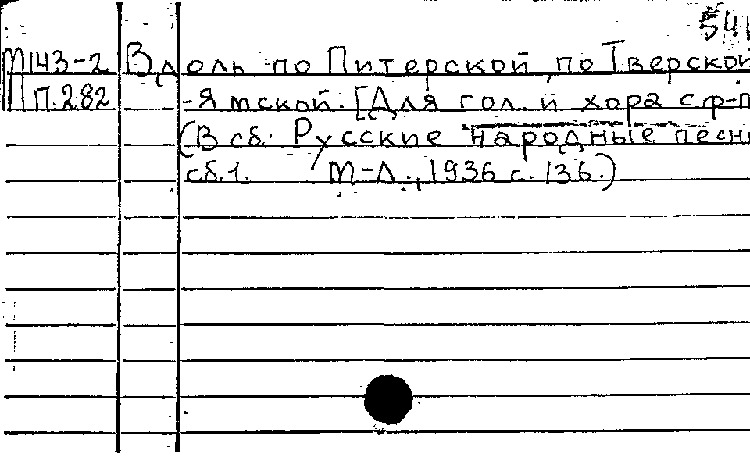 541
М143-2 Вдоль по Питерской, по Тверской
П.282 -Ямской. [Для гол. и хора с ф-п
(В сб. Русские народные песни
сб.1. М-Л., 1936 с. 136.)